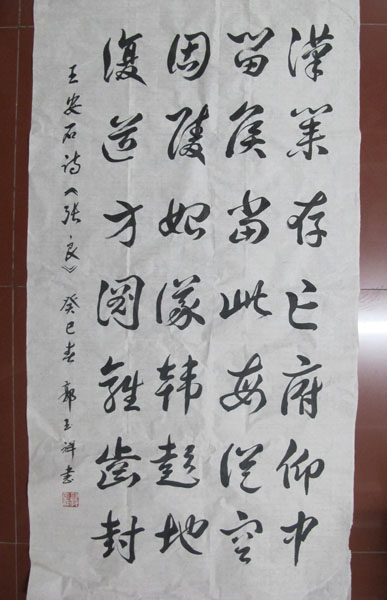 漢業存亡府仰中
留侯當此每從容
固陵始議韓彭地
復道方圖雍齒封
王安石诗《張良》癸巳春 郭玉祥書